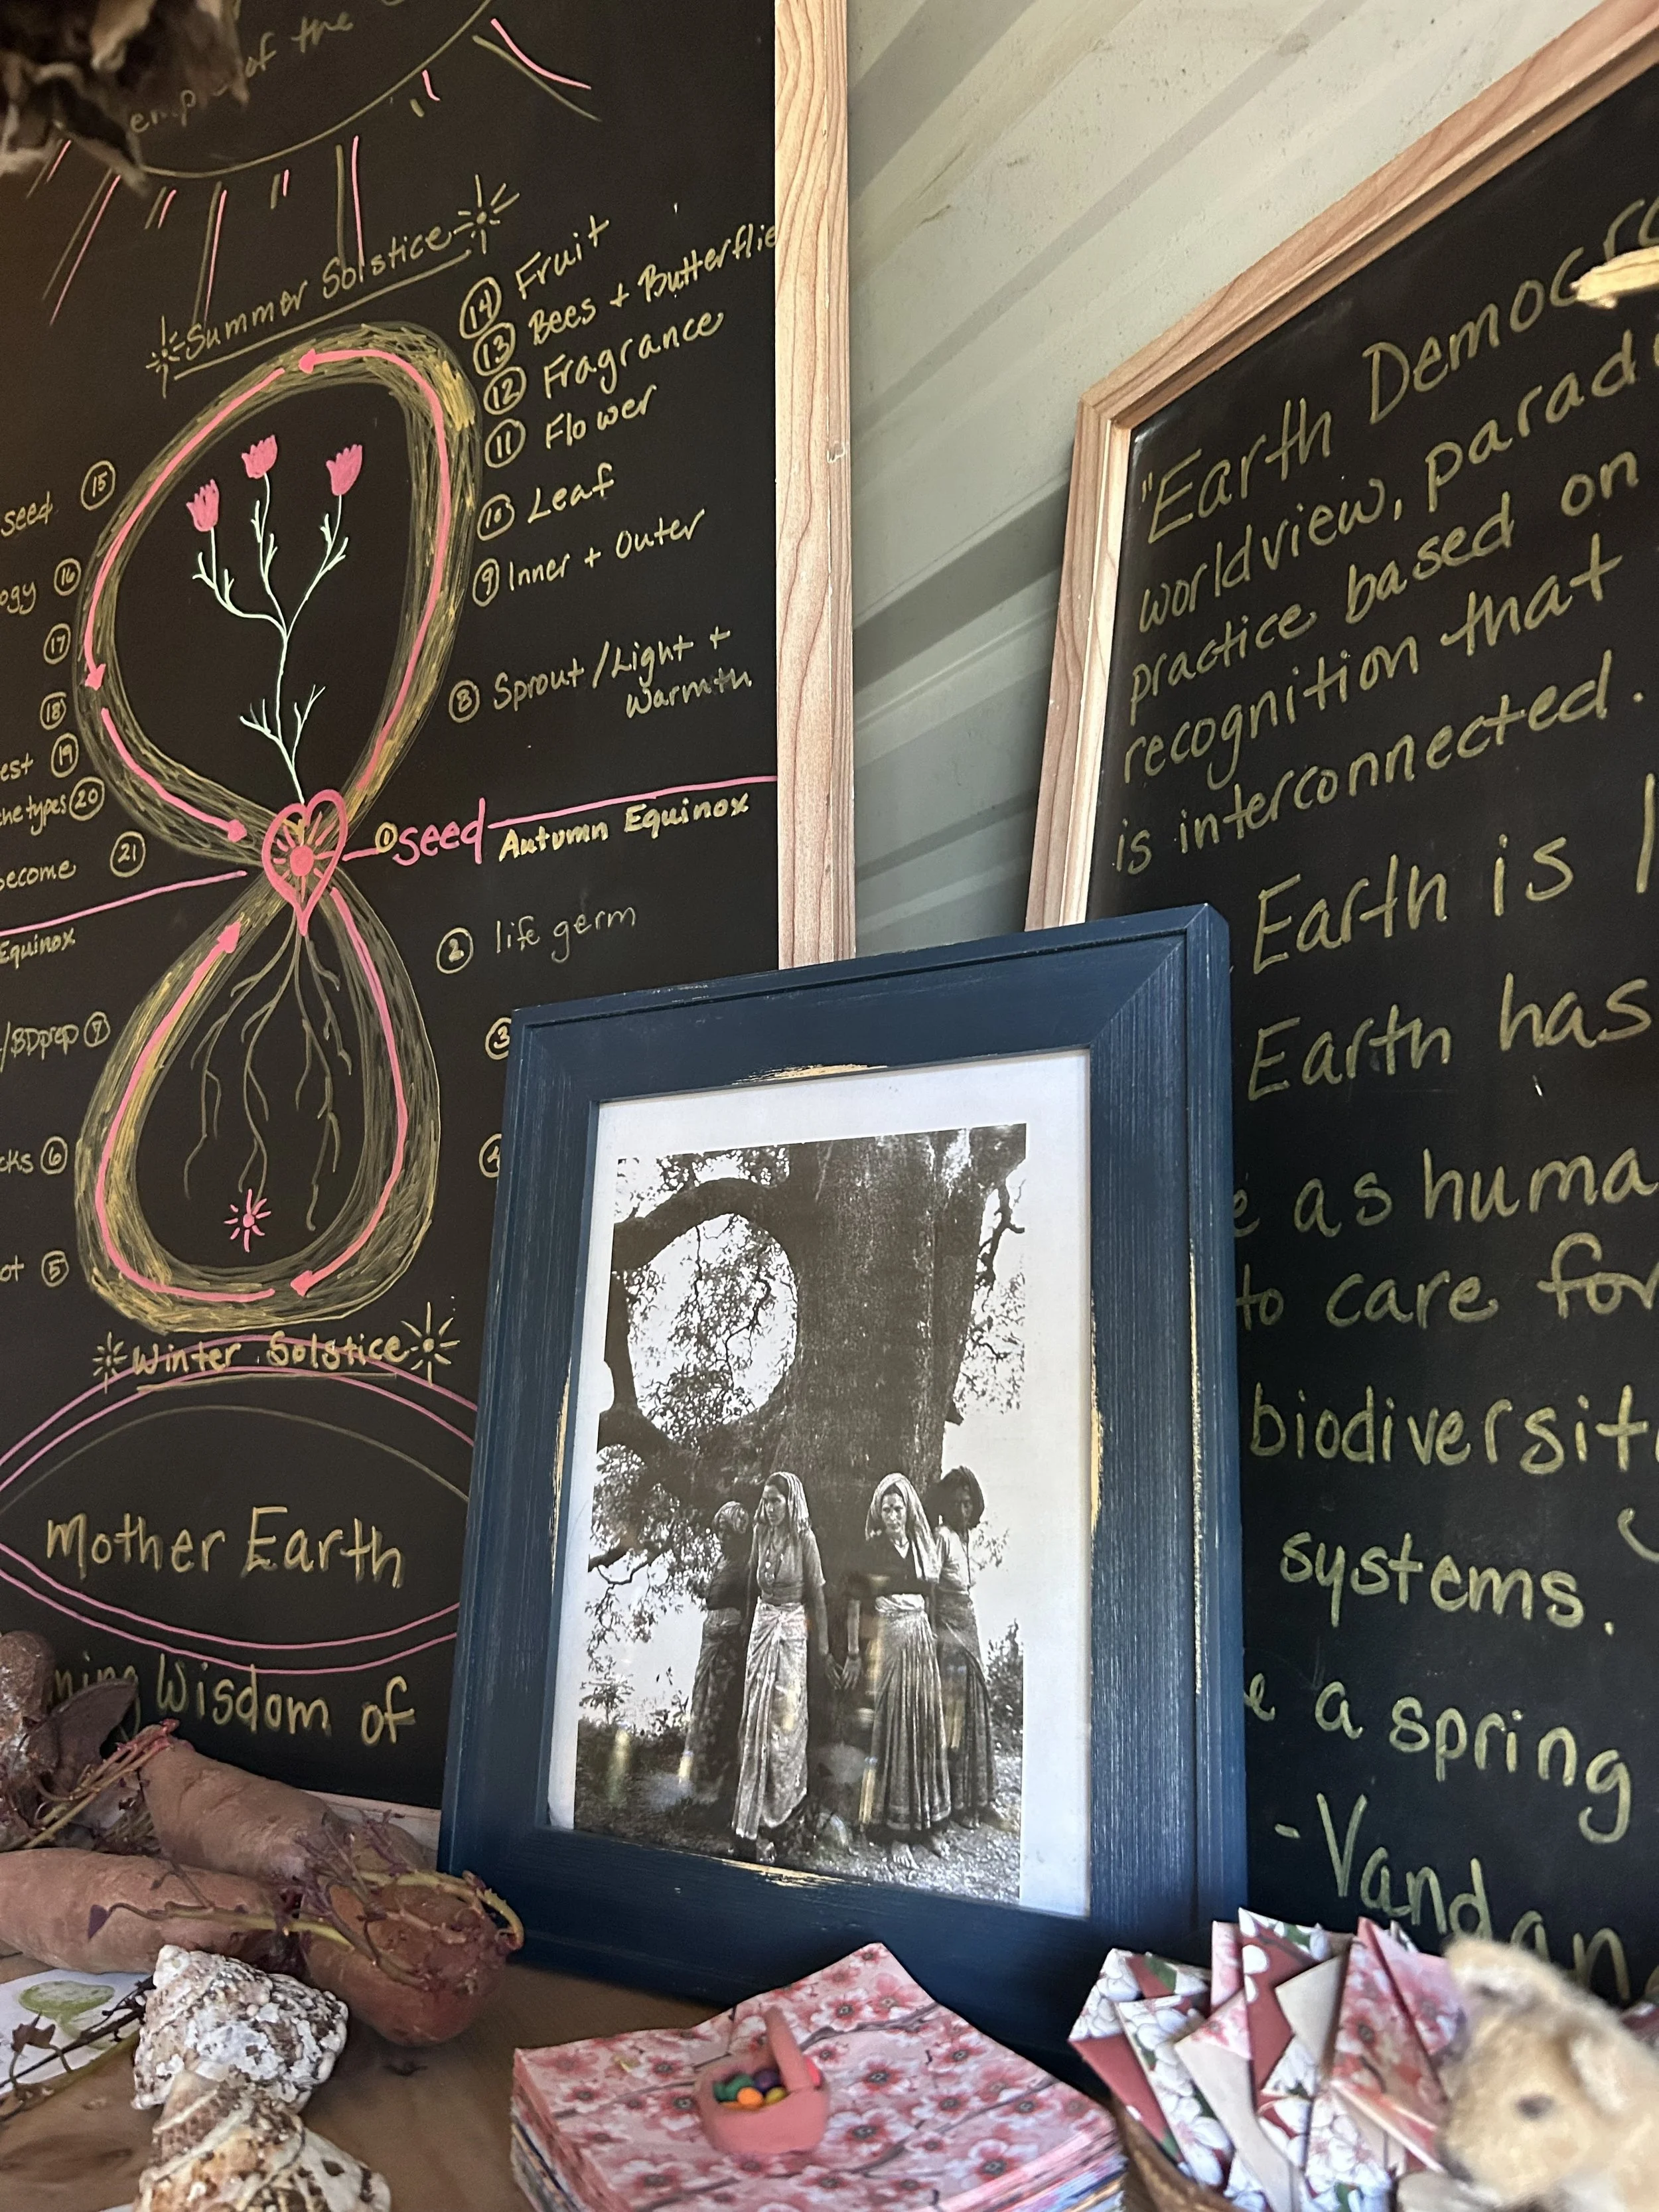 of the
Summer Solstice
14 Fruit
13 Bees + Butterflie
12 Fragrance
11 Flower
10 Leaf
9 Inner + Outer
8 Sprout / Light +
Warmth
seed 15
ogy 16
17
18
est 19
20
become 21
1 seed Autumn Equinox
Equinox
2 life germ
3
4
/BDprep 7
cks 6
ot 5
Winter Solstice
Mother Earth
ning Wisdom of
"Earth Democra
worldview, paradi
practice based on
recognition that
is interconnected.
Earth is
Earth has
e as huma
to care for
biodiversit
systems.
e a spring
- Vandan